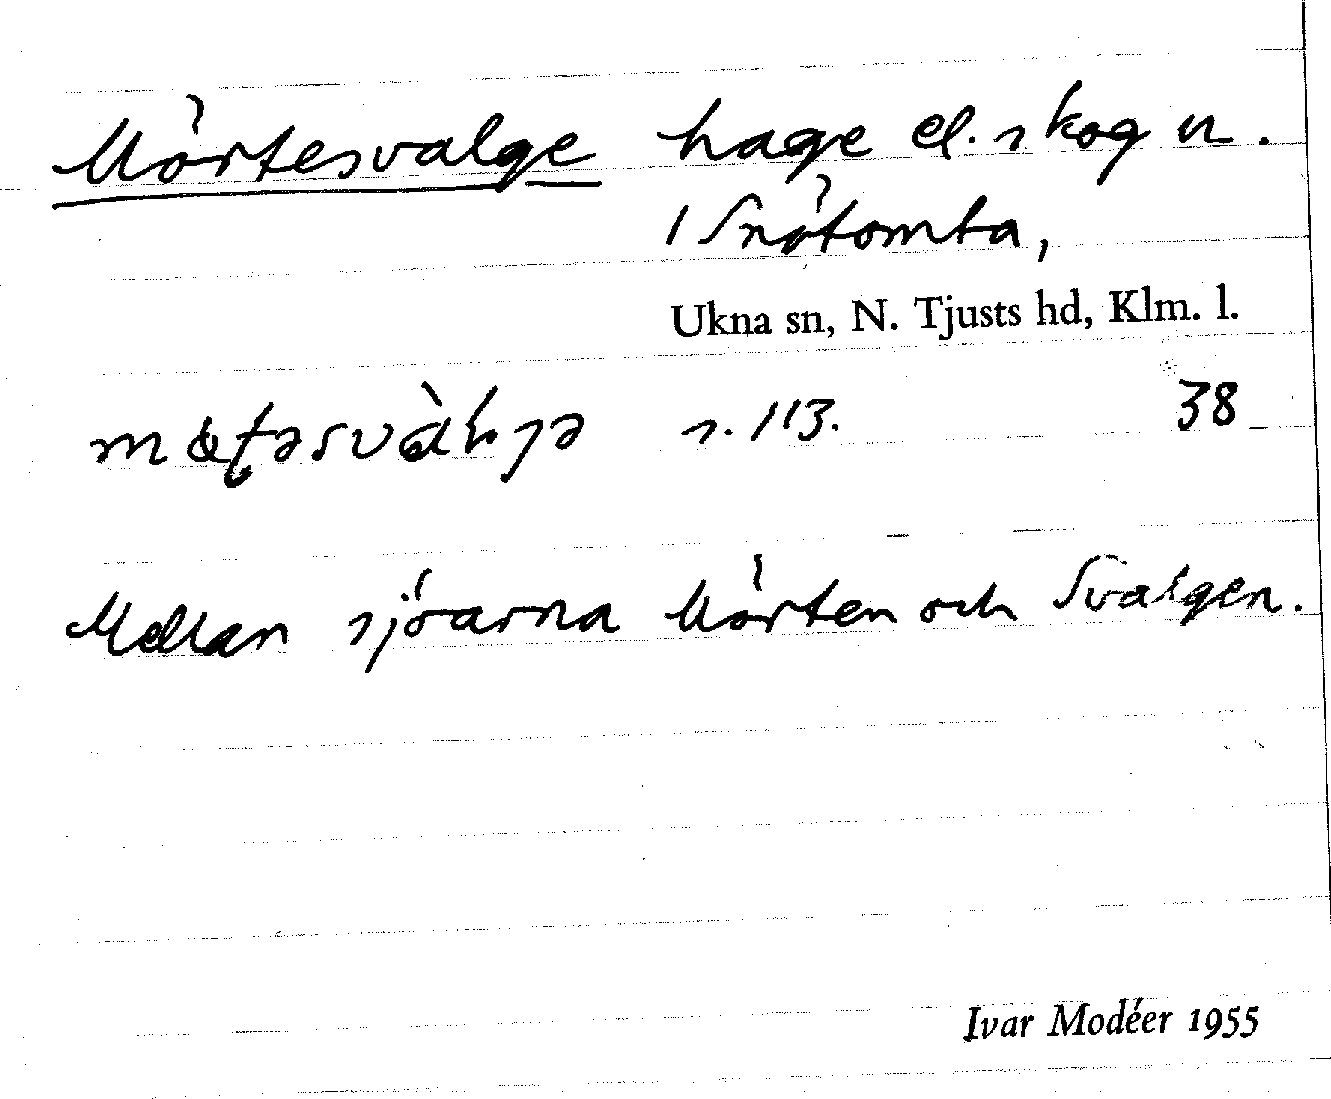 Mörtesvalge hage el. skog u.
1 Snötomta,
Ukna sn, N. Tjusts hd, Klm. l.
s. 113. 38
Mellan sjöarna Mörten och Svalgen.
Ivar Modéer 1955